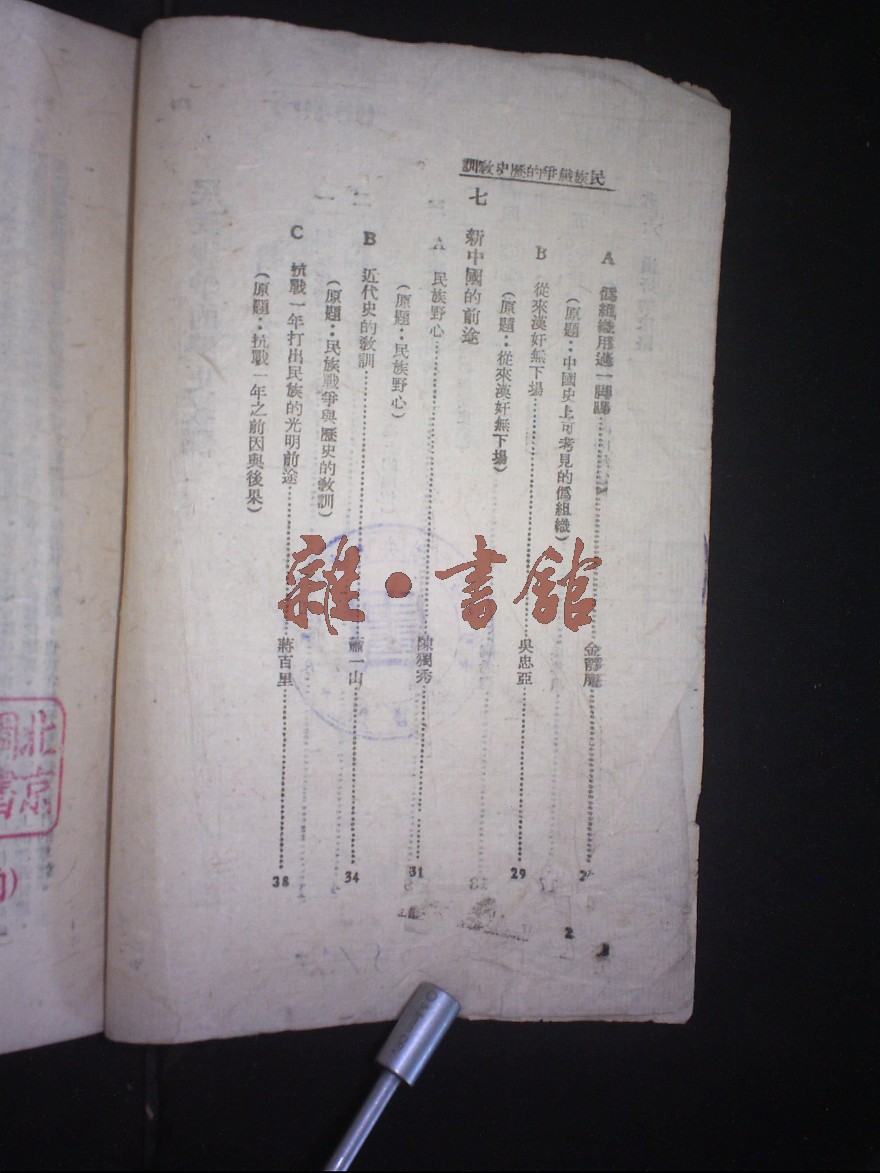 民族戰爭的歷史敎訓
A 僞組織用過一
(原題：中國史上可考見的僞組織)
B 從來漢奸無下場 吳忠亞 29
(原題：從來漢奸無下場)
七 新中國的前途
A 民族野心 陳獨秀 31
(原題：民族野心)
B 近代史的敎訓 蕭一山 34
(原題：民族戰爭與歷史的敎訓)
C 抗戰一年打出民族的光明前途 蔣百里 38
(原題：抗戰一年之前因與後果)
2
雜·書館
北京